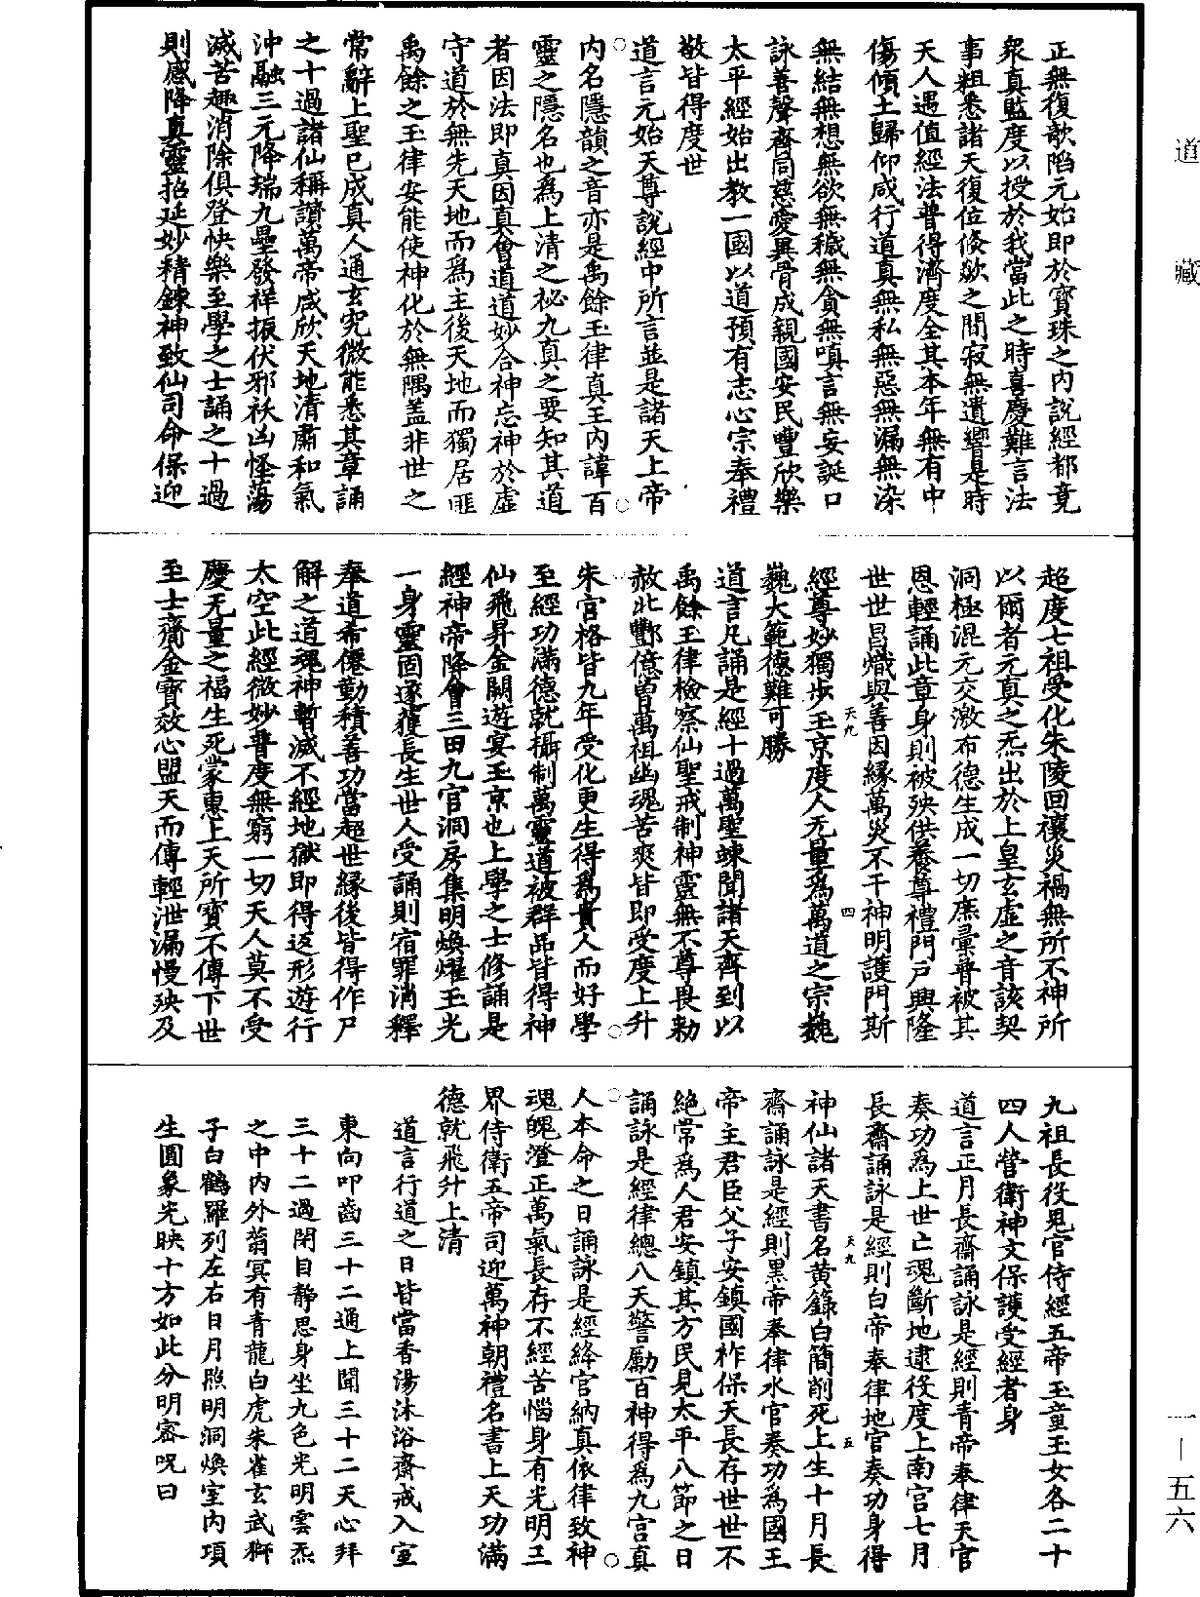 道藏
正無復歒陷元始即於寳珠之內説經都竟
衆真監度以授於我當此之時喜慶難言法
事粗悉諸天復位倏欻之間寂無遺響是時
天人遇值經法普得濟度全其本年無有中
傷傾土歸仰咸行道真無私無惡無漏無染
無結無想無欲無穢無貪無嗔言無妄誕口
詠善聲齊同慈愛異骨成親國安民豐欣樂
太平經始出教一國以道預有志心宗奉禮
敬皆得度世
道言元始天尊説經中所言並是諸天上帝
內名隱韻之音亦是禹餘玉律真王內諱百
靈之隱名也為上清之祕九真之要知其道
者因法即真因真會道道妙合神忘神於虛
守道於無先天地而為主後天地而獨居匪
禹餘之玉律安能使神化於無隅盖非世之
常辭上聖已成真人通玄究微能悉其章誦
之十過諸仙稱讚萬帝咸欣天地清肅和氣
沖融三元降瑞九壘發祥振伏邪祅凶怪蕩
滅苦趣消除俱登快樂至學之士誦之十過
則感降真靈招延妙精鍊神致仙司命保迎
超度七祖受化朱陵回禳災禍無所不神所
以爾者元真之炁出於上皇玄虛之音該契
洞極混元交激布德生成一切庶彙普被其
恩輕誦此章身則被殃供養尊禮門戶興隆
世世昌熾與善因緣萬災不干神明護門斯
天九 四
經尊妙獨步玉京度人无量為萬道之宗巍
巍大範德難可勝
道言凡誦是經十過萬聖竦聞諸天齊到以
禹餘玉律檢察仙聖戒制神靈無不尊畏勑
赦北酆億曾萬祖幽魂苦爽皆即受度上升
朱宮格皆九年受化更生得為貴人而好學
至經功滿德就攝制萬靈道被群品皆得神
仙飛昇金闕遊宴玉京也上學之士修誦是
經神帝降會三田九宮洞房集明煥耀玉光
一身靈固遂獲長生世人受誦則宿罪消釋
奉道希僊勤積善功當超世緣後皆得作尸
解之道䰟神暫滅不經地獄即得返形遊行
太空此經微妙普度無窮一切天人莫不受
慶无量之福生死蒙惠上天所寶不傳下世
至士齎金寶效心盟天而傳輕泄漏慢殃及
九祖長役鬼官侍經五帝玉童玉女各二十
四人營衛神文保護受經者身
道言正月長齋誦詠是經則青帝奉律天官
奏功為上世亡魂斷地逮役度上南宮七月
長齋誦詠是經則白帝奉律地官奏功身得
天九 五
神仙諸天書名黃籙白簡削死上生十月長
齋誦詠是經則黑帝奉律水官奏功為國王
帝主君臣父子安鎮國祚保天長存世世不
絕常為人君安鎮其方民見太平八節之日
誦詠是經律總八天警勵百神得為九宮真
人本命之日誦詠是經絳宮納真依律致神
魂魄澄正萬氣長存不經苦惱身有光明三
界侍衛五帝司迎萬神朝禮名書上天功滿
德就飛升上清
道言行道之日皆當香湯沐浴齋戒入室
東向叩齒三十二通上聞三十二天心拜
三十二過閉目靜思身坐九色光明雲炁
之中內外蓊冥有青龍白虎朱雀玄武獅
子白鶴羅列左右日月照明洞煥室內項
生圓象光映十方如此分明密呪曰
一—五六